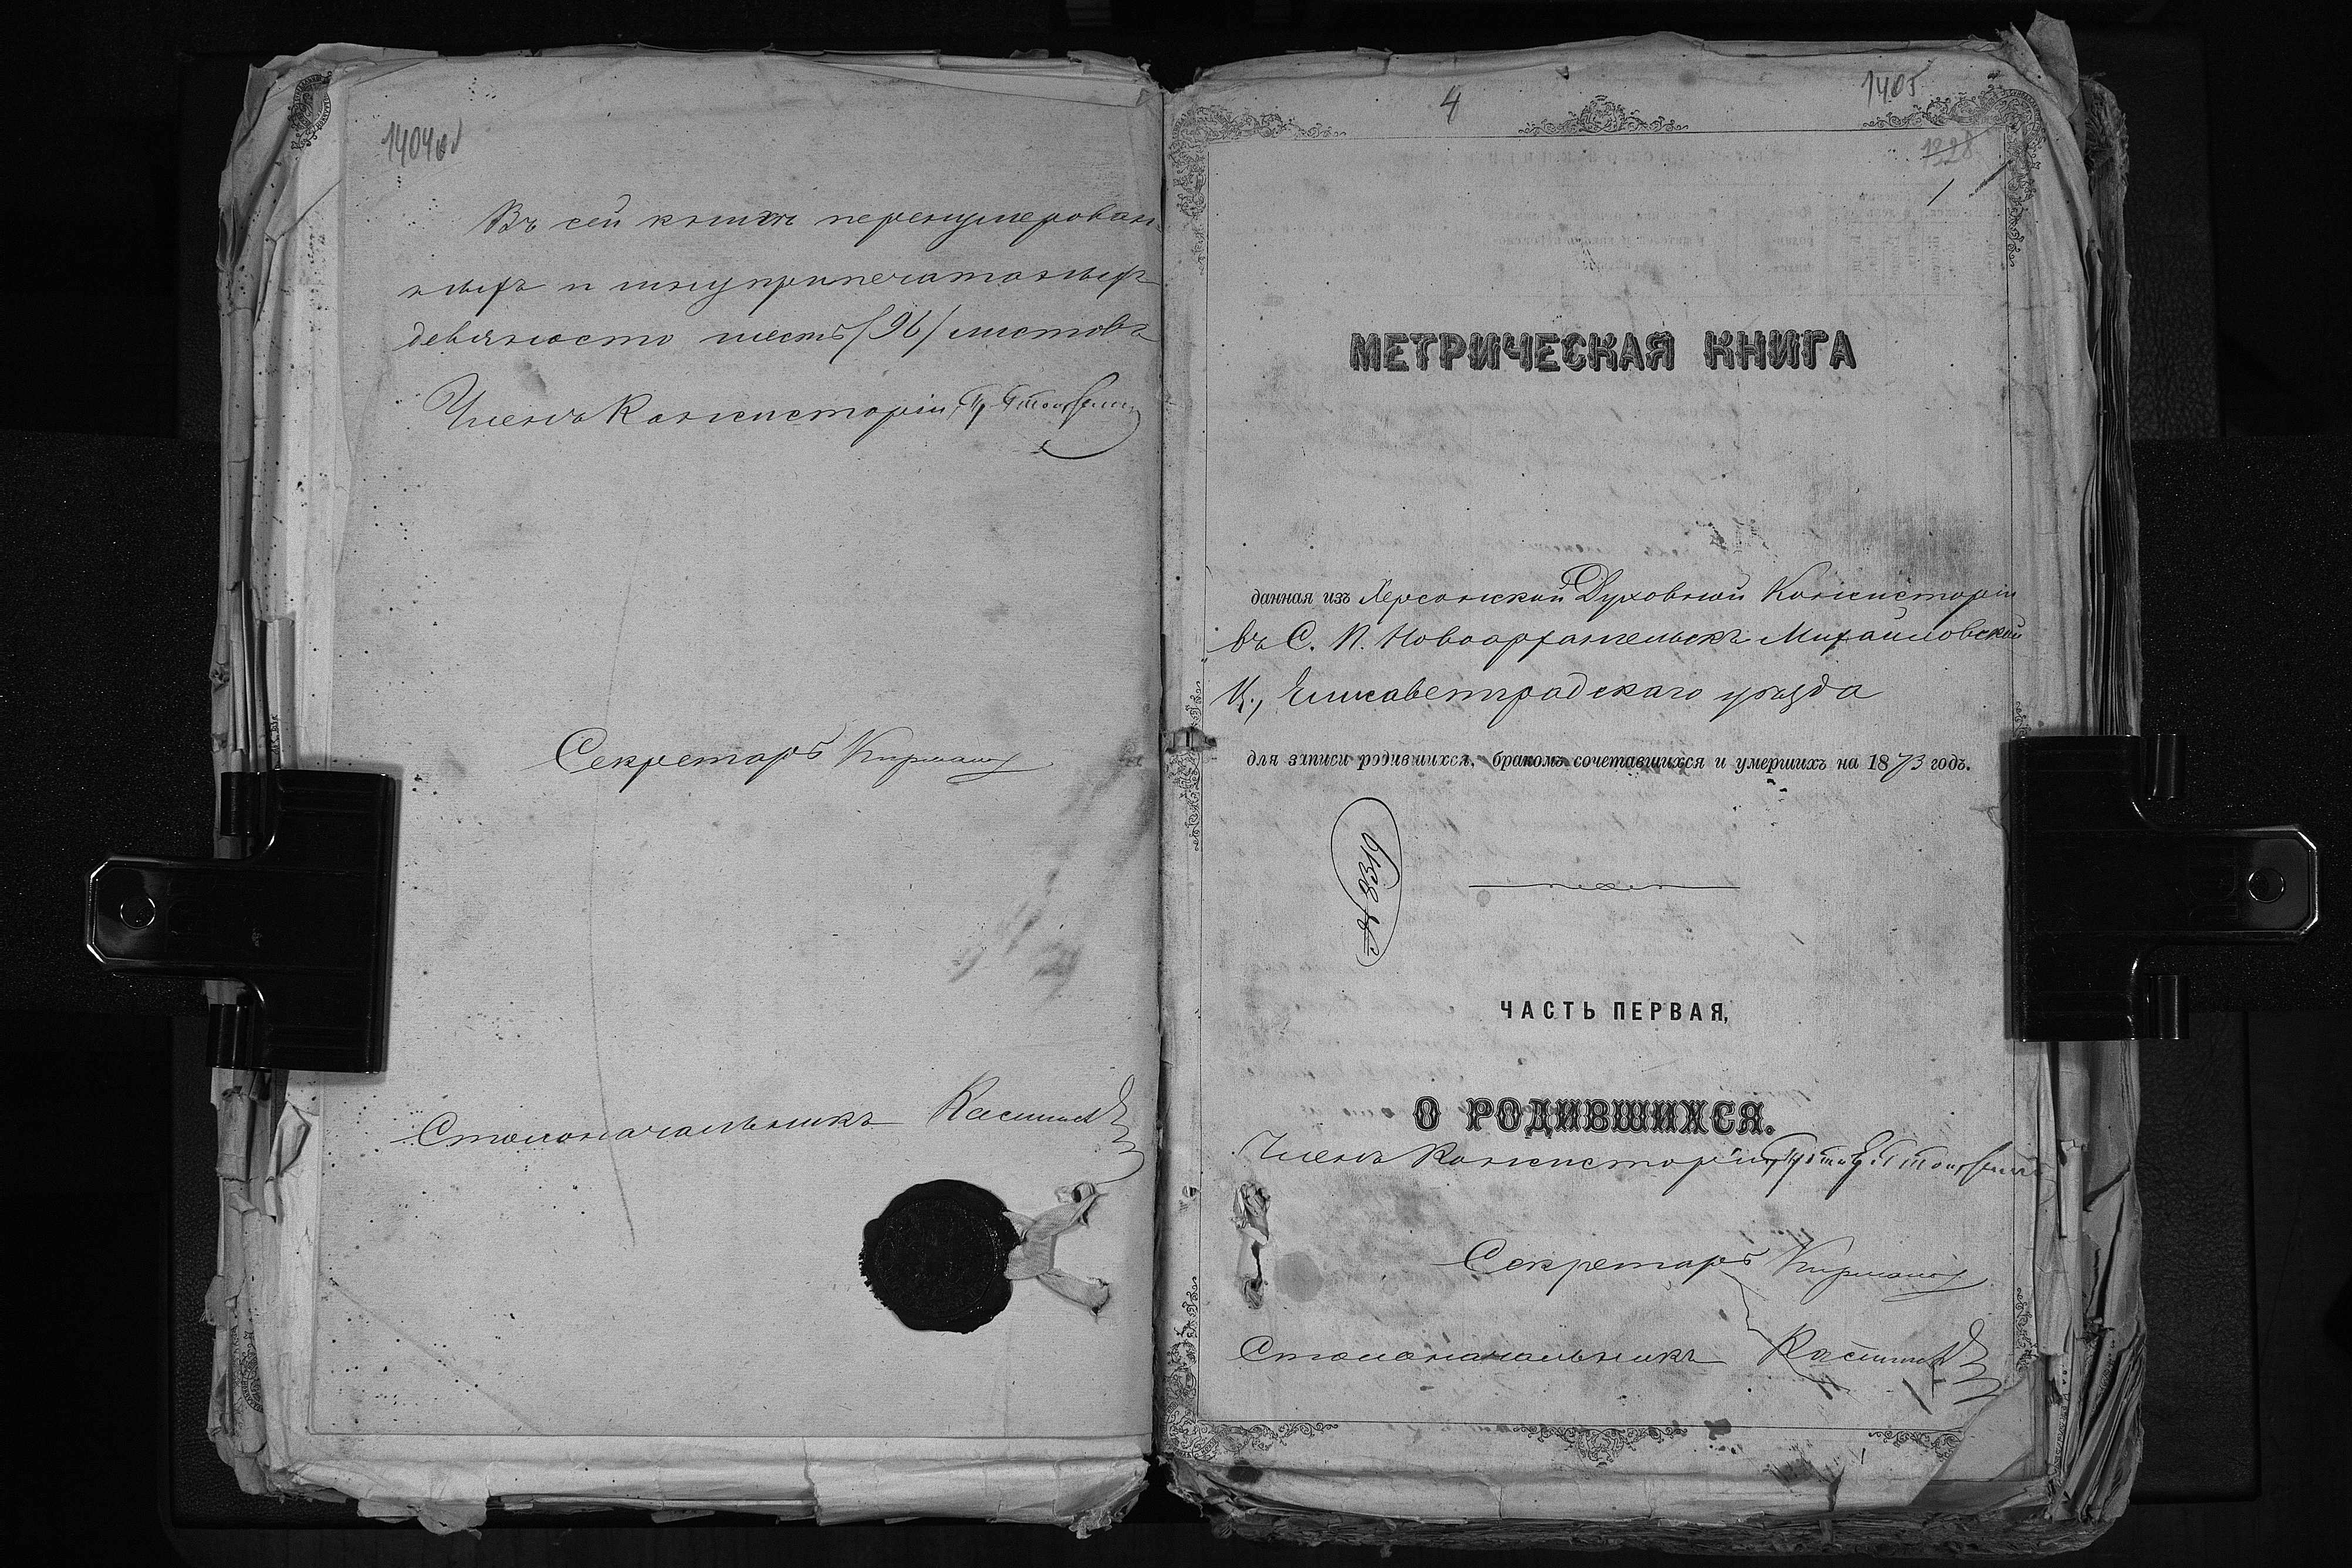 1404об
Въ сей книгѣ перенумерован-
ныхъ и шнуроприпечатанныхъ
девяносто шесть /96/ листовъ
Членъ Консисторіи,
Секретарь
Столоначальникъ
4
1405
1328
1
МЕТРИЧЕСКАЯ КНИГА
данная изъ Херсонской Духовной Консисторіи
въ С. П. Новоархангельскъ Михайловской
ц., Елисаветградскаго уѣзда
для записи родившихся, бракомъ сочетавшихся и умершихъ на 1873 годъ.
ЧАСТЬ ПЕРВАЯ,
О РОДИВШИХСЯ.
Членъ Консисторіи,
Секретарь
Столоначальникъ